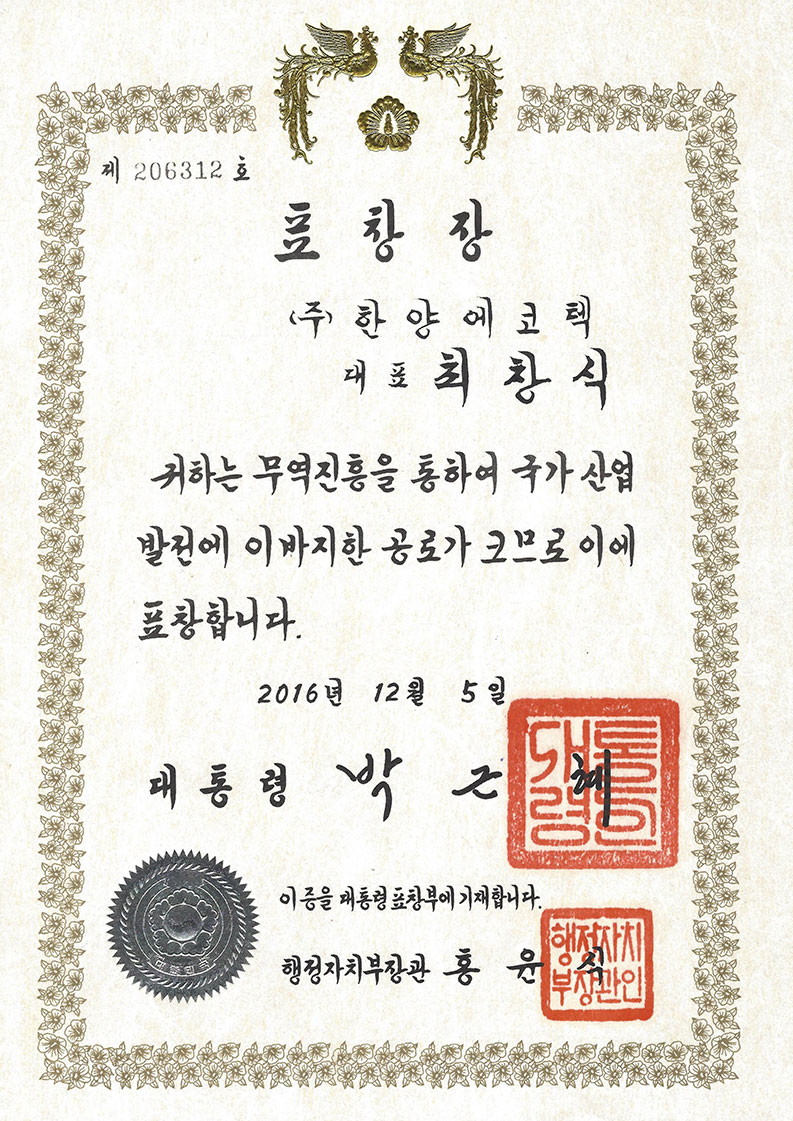 제 206312 호
표창장
(주) 한양에코텍
대표 최창식
귀하는 무역진흥을 통하여 국가 산업
발전에 이바지한 공로가 크므로 이에
표창합니다.
2016년 12월 5일
대통령 박근혜
대통령의인
이 증을 대통령표창부에 기재합니다.
행정자치부장관 홍윤식
행정자치
부장관인
대한민국